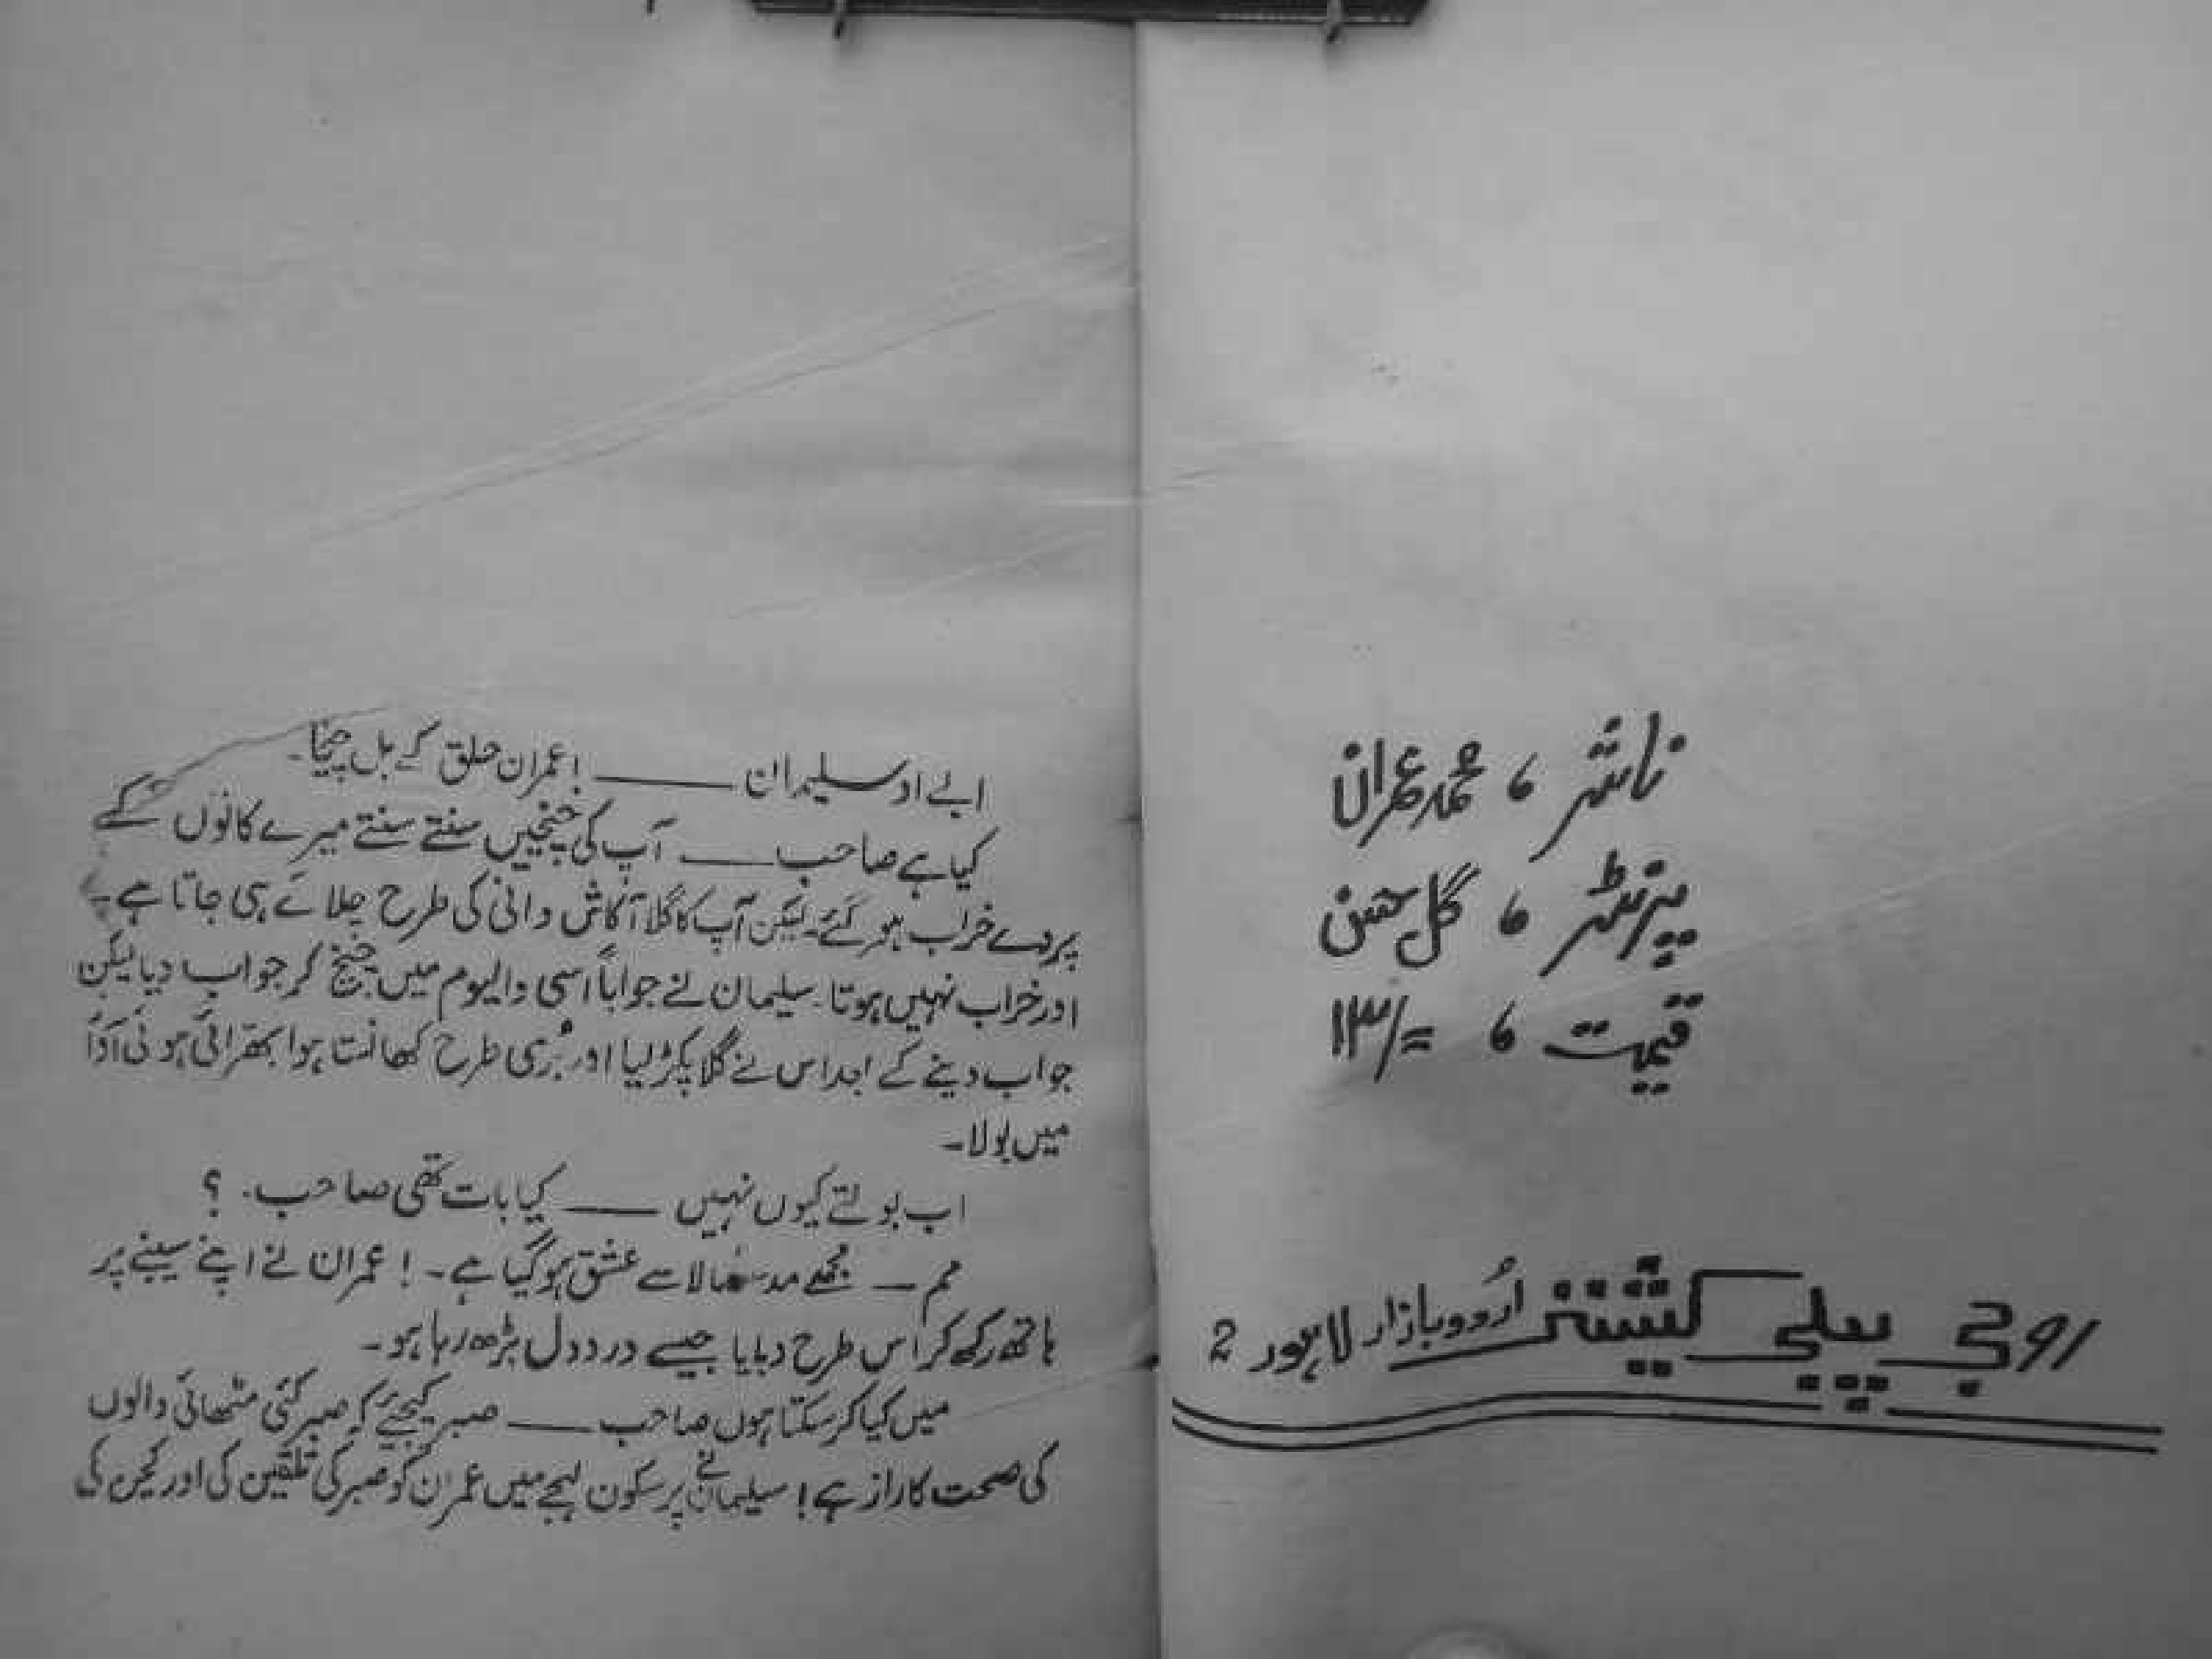 ناشر ، محمد عمران
پرنٹر ، گل حسن
قیمت ، ۱۳/=
روبی پبلی کیشنز اُردو بازار لاہور 2
ابے او سلیمان ــــــ ! عمران حلق کے بل چیخا۔
کیا ہے صاحب ــــــ آپ کی چیخیں سنتے سنتے میرے کانوں کے
پردے خراب ہو گئے۔ لیکن آپ کا گلا آکاش وانی کی طرح چلائے ہی جاتا ہے۔
اور خراب نہیں ہوتا۔ سلیمان نے جواباً اسی والیوم میں چیخ کر جواب دیا لیکن
جواب دینے کے بعد اس نے گلا پکڑ لیا اور بُری طرح کھانستا ہوا بھرائی ہوئی آواز
میں بولا۔
اب بولتے کیوں نہیں ــــــ کیا بات تھی صاحب۔ ؟
مم ــ مجھے مدھو بالا سے عشق ہو گیا ہے۔ ! عمران نے اپنے سینے پر
ہاتھ رکھ کر اس طرح دبایا جیسے درد دل بڑھ رہا ہو۔
میں کیا کر سکتا ہوں صاحب ــــــ صبر کیجئے کہ صبر کئی مٹھائی والوں
کی صحت کا راز ہے ! سلیمان نے پرسکون لہجے میں عمران کو صبر کی تلقین کی اور کچن کی